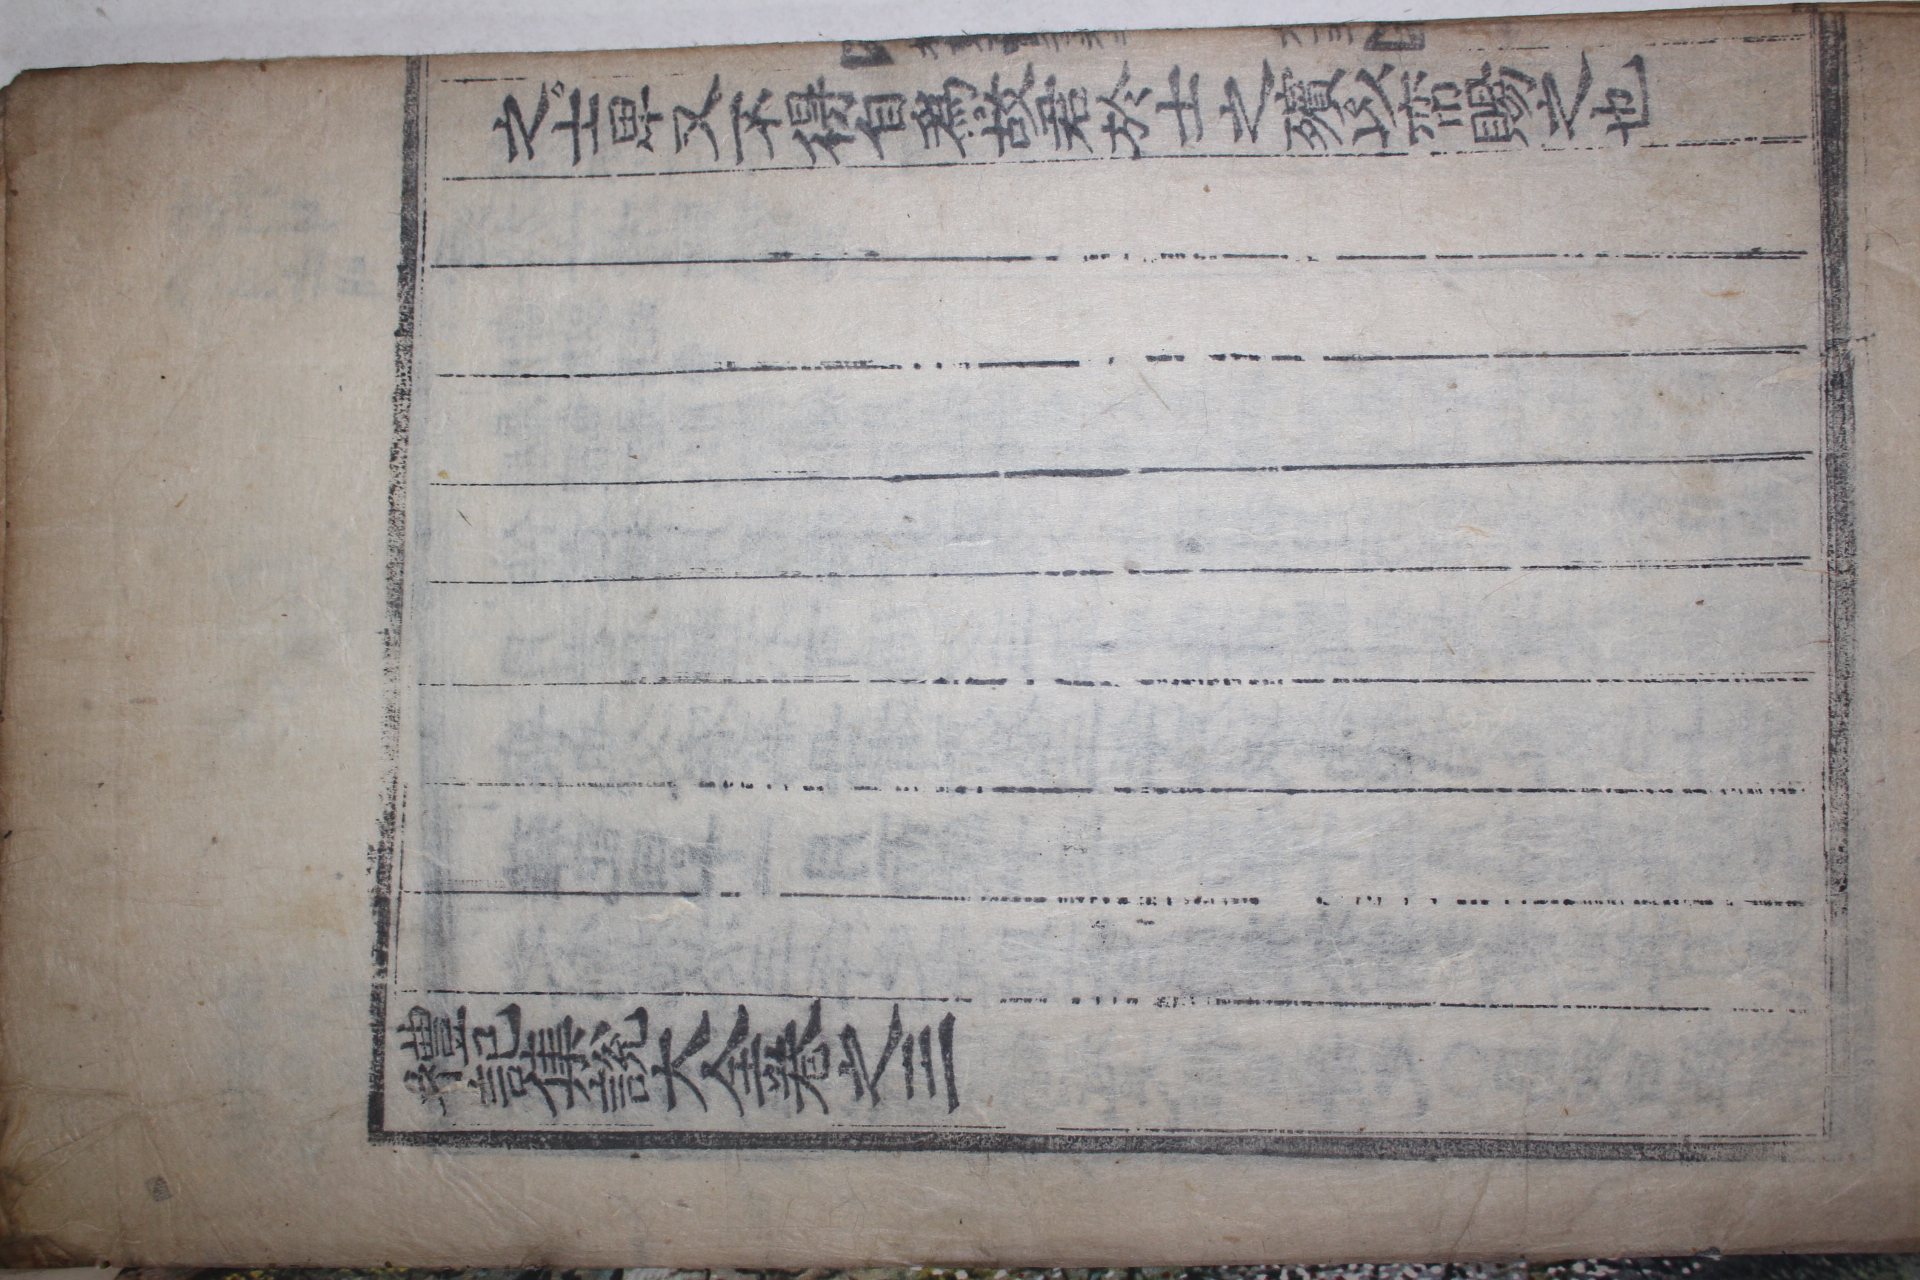 之。士卑又不得自爲故君於士之殯以帟賜之也
禮記集說大全卷之三